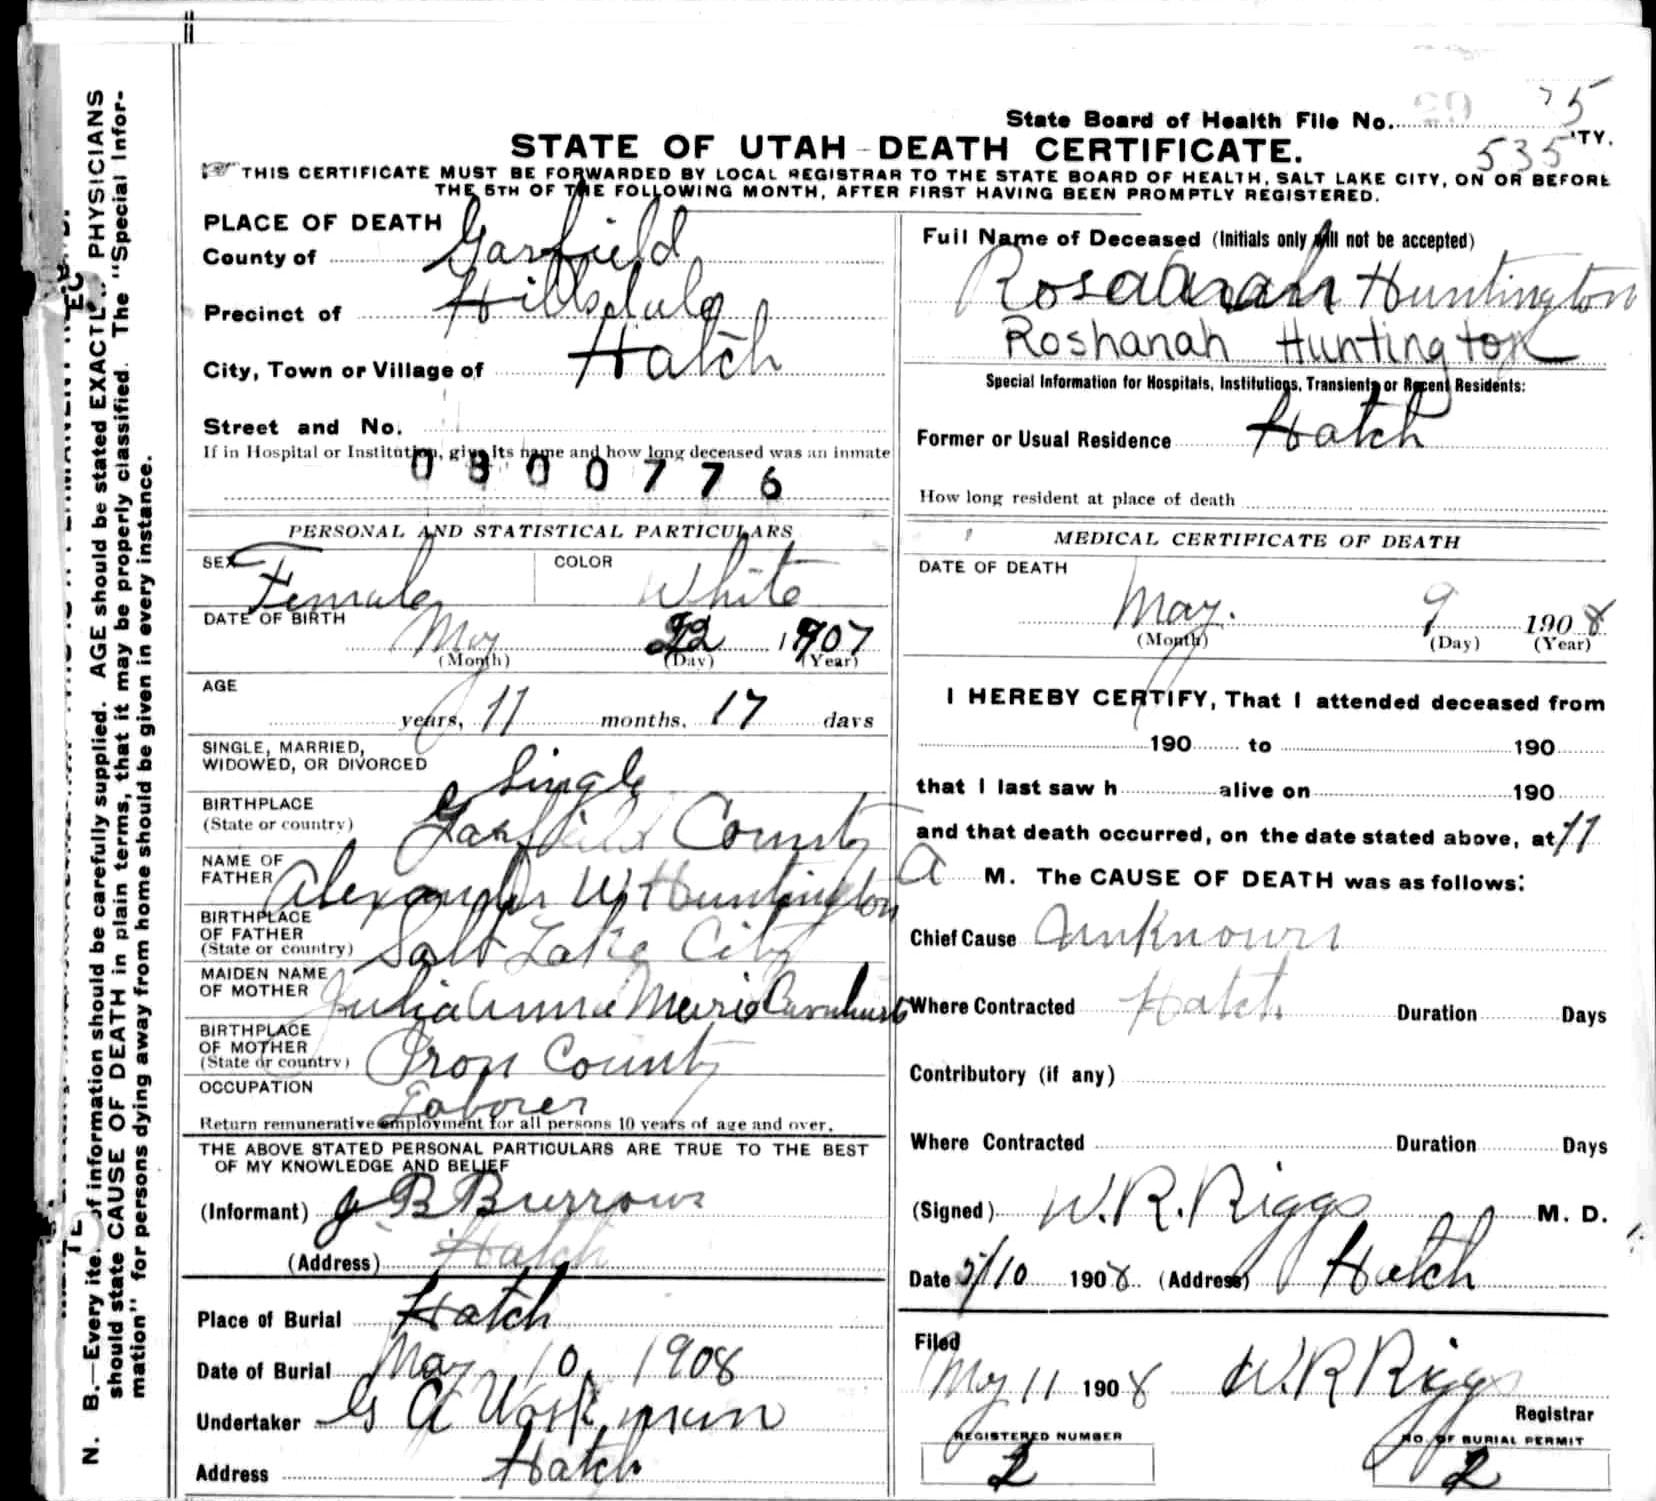 State Board of Health File No. 75
535
STATE OF UTAH - DEATH CERTIFICATE.
THIS CERTIFICATE MUST BE FORWARDED BY LOCAL REGISTRAR TO THE STATE BOARD OF HEALTH, SALT LAKE CITY, ON OR BEFORE
THE 5TH OF THE FOLLOWING MONTH, AFTER FIRST HAVING BEEN PROMPTLY REGISTERED.
PLACE OF DEATH
County of Garfield
Precinct of Hillsdale
City, Town or Village of Hatch
Street and No.
If in Hospital or Institution, give its name and how long deceased was an inmate
0800776
PERSONAL AND STATISTICAL PARTICULARS
SEX Female COLOR White
DATE OF BIRTH May 22 1907
(Month) (Day) (Year)
AGE
years, 11 months, 17 days
SINGLE, MARRIED,
WIDOWED, OR DIVORCED Single
BIRTHPLACE
(State or country) Garfield County
NAME OF
FATHER Alexander W Huntington
BIRTHPLACE
OF FATHER
(State or country) Salt Lake City
MAIDEN NAME
OF MOTHER Julia Anna Marie
BIRTHPLACE
OF MOTHER
(State or country) Iron County
OCCUPATION
Laborer
Return remunerative employment for all persons 10 years of age and over.
THE ABOVE STATED PERSONAL PARTICULARS ARE TRUE TO THE BEST
OF MY KNOWLEDGE AND BELIEF
(Informant) J B Burrows
(Address) Hatch
Place of Burial Hatch
Date of Burial May 10, 1908
Undertaker G A Workman
Address Hatch
Full Name of Deceased (Initials only will not be accepted)
Huntington
Roshanah Huntington
Special Information for Hospitals, Institutions, Transients or Recent Residents:
Former or Usual Residence Hatch
How long resident at place of death
MEDICAL CERTIFICATE OF DEATH
DATE OF DEATH
May. 9 1908
(Month) (Day) (Year)
I HEREBY CERTIFY, That I attended deceased from
190 to 190
that I last saw h alive on 190
and that death occurred, on the date stated above, at 11
A M. The CAUSE OF DEATH was as follows:
Chief Cause Unknown
Where Contracted Hatch. Duration Days
Contributory (if any)
Where Contracted Duration Days
(Signed) W. R. Riggs M. D.
Date 5/10 1908. (Address) Hatch
Filed
May 11 1908 W. R Riggs
Registrar
REGISTERED NUMBER
2
NO. OF BURIAL PERMIT
2
N. B.—Every item of information should be carefully supplied. AGE should be stated EXACTLY. PHYSICIANS
should state CAUSE OF DEATH in plain terms, that it may be properly classified. The "Special Infor-
mation" for persons dying away from home should be given in every instance.